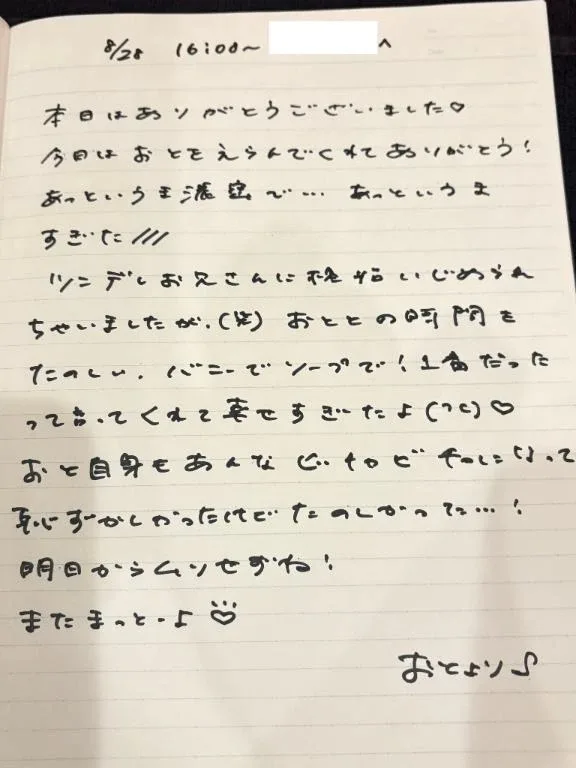 8/28 16:00〜 へ
本日はありがとうございました♡
今日はおとをえらんでくれてありがとう!
あっというま濃密で… あっというま
すぎた///
ツンデレお兄さんに 格 いじめられ
ちゃいましたが、(笑) おととの時間を
たのしい、バニーでソープで!1番だった
って言ってくれて幸せすぎたよ(つ.と)♡
おと自身もあんなビチャビチャになって
恥ずかしかったけどたのしかった…!
明日からムリせずね!
またまっとーよ♡
おとより♪